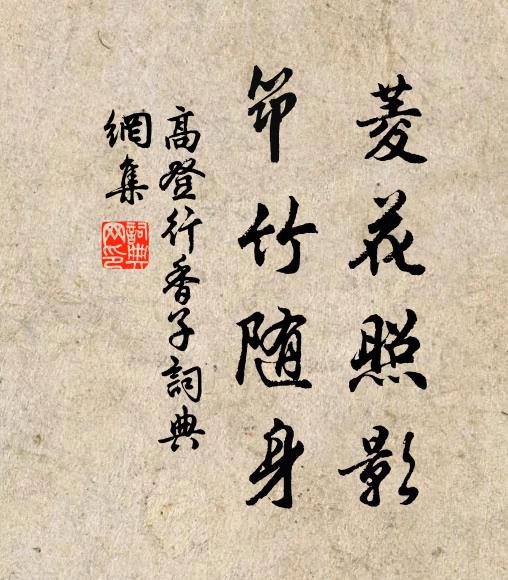 菱花照影
筇竹随身
高登行香子詞典
網集
詞典
网印